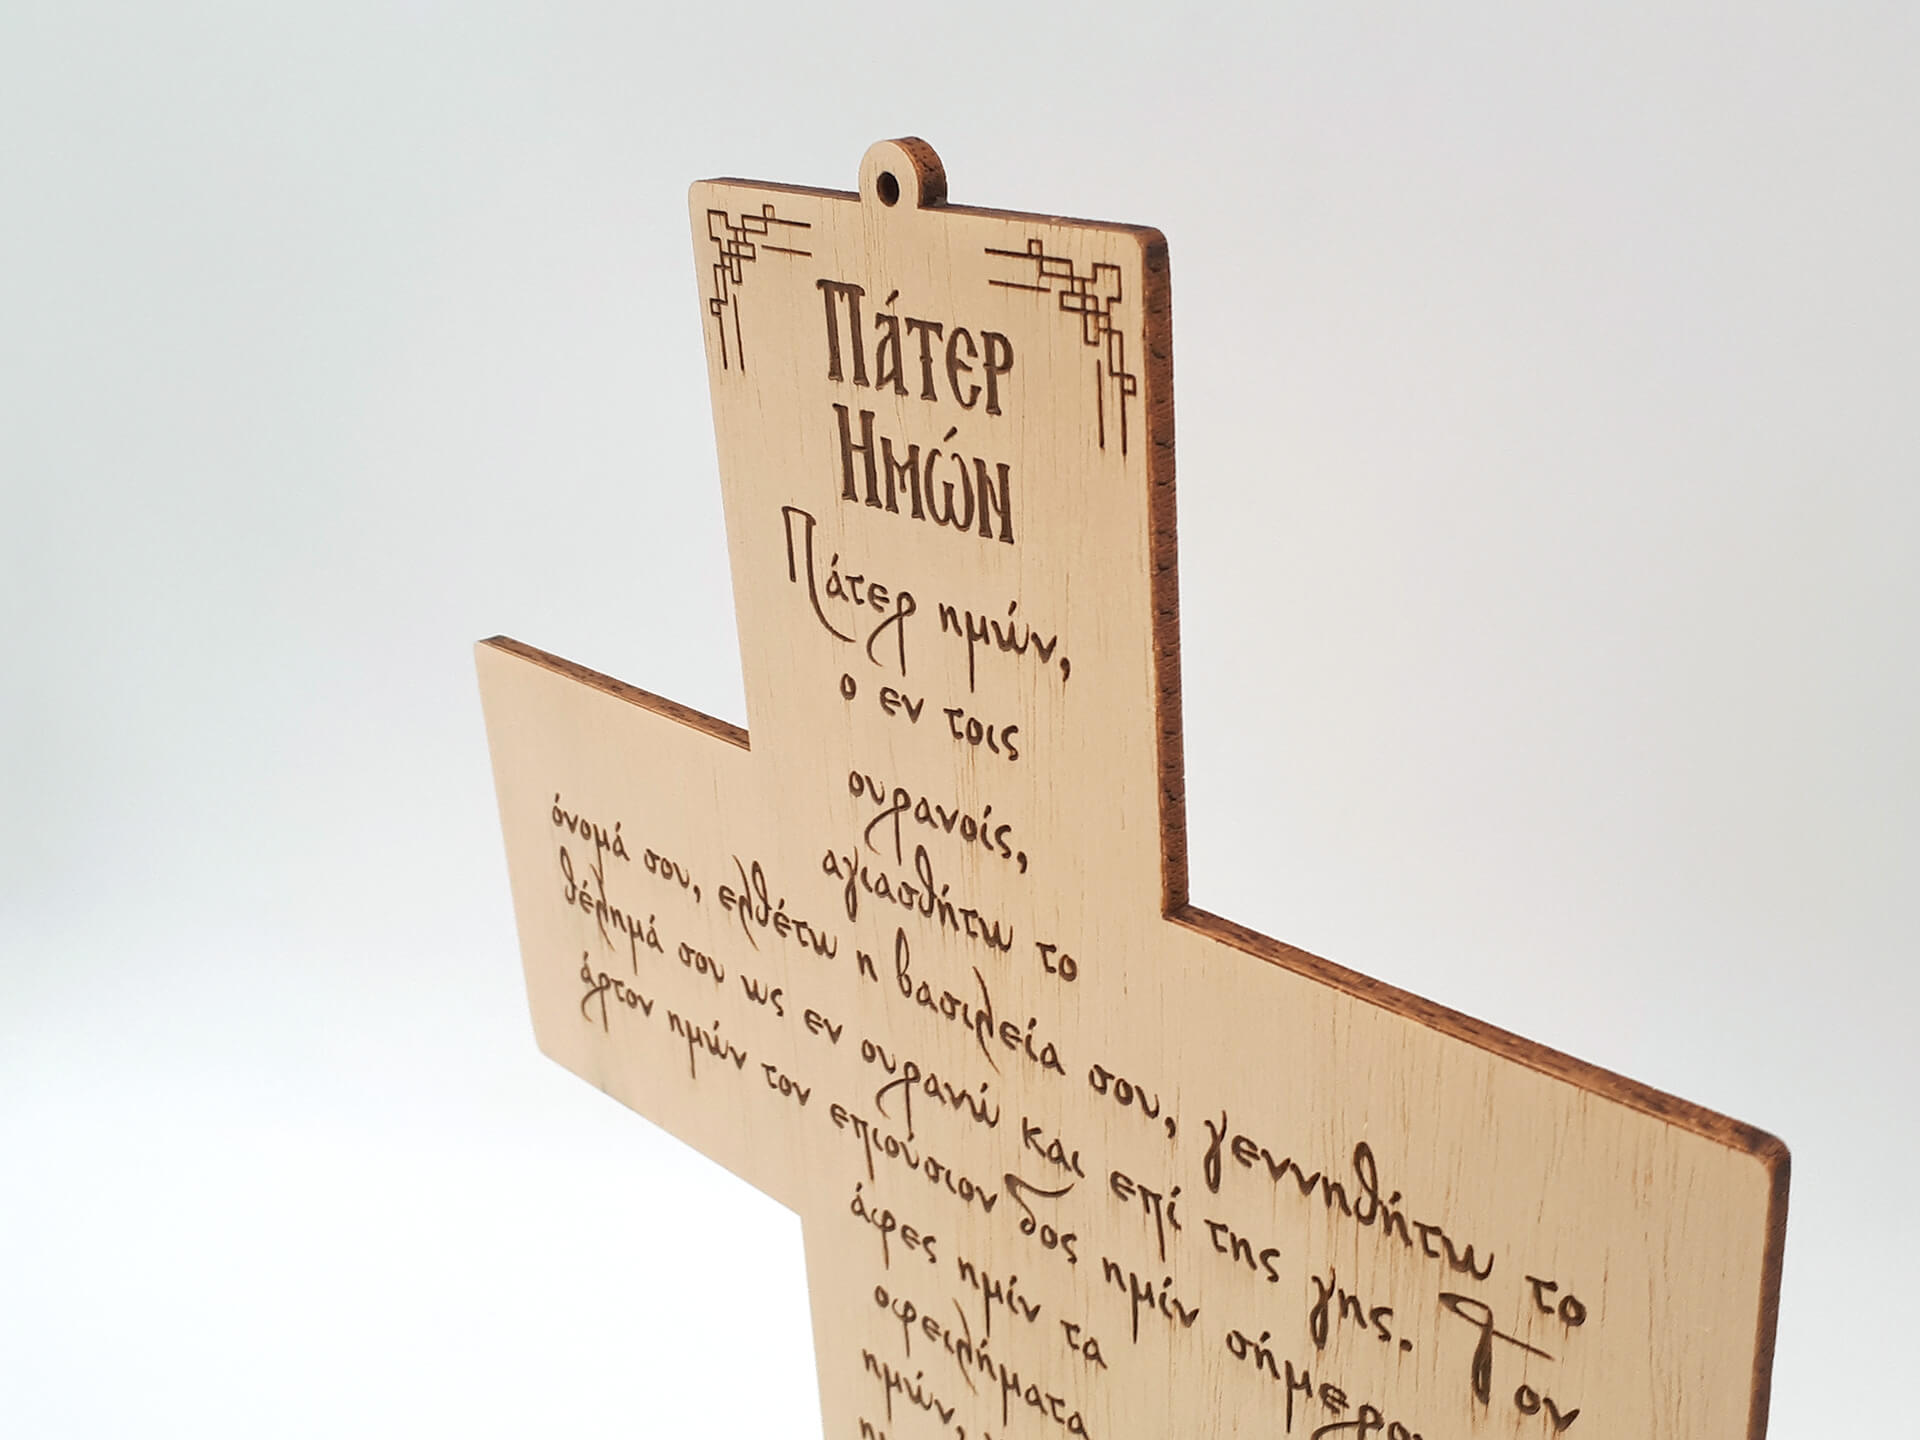 Πάτερ
Ημών
Πάτερ ημών,
ο εν τοις
ουρανοίς,
αγιασθήτω το
όνομά σου, ερθέτω η βασιλεία σου, γεννηθήτω το
θέλημά σου ως εν ουρανώ και επί της γης. Τον
άρτον ημών τον επιούσιον δος ημίν
άφες ημίν τα
οφειλήματα
ημών,